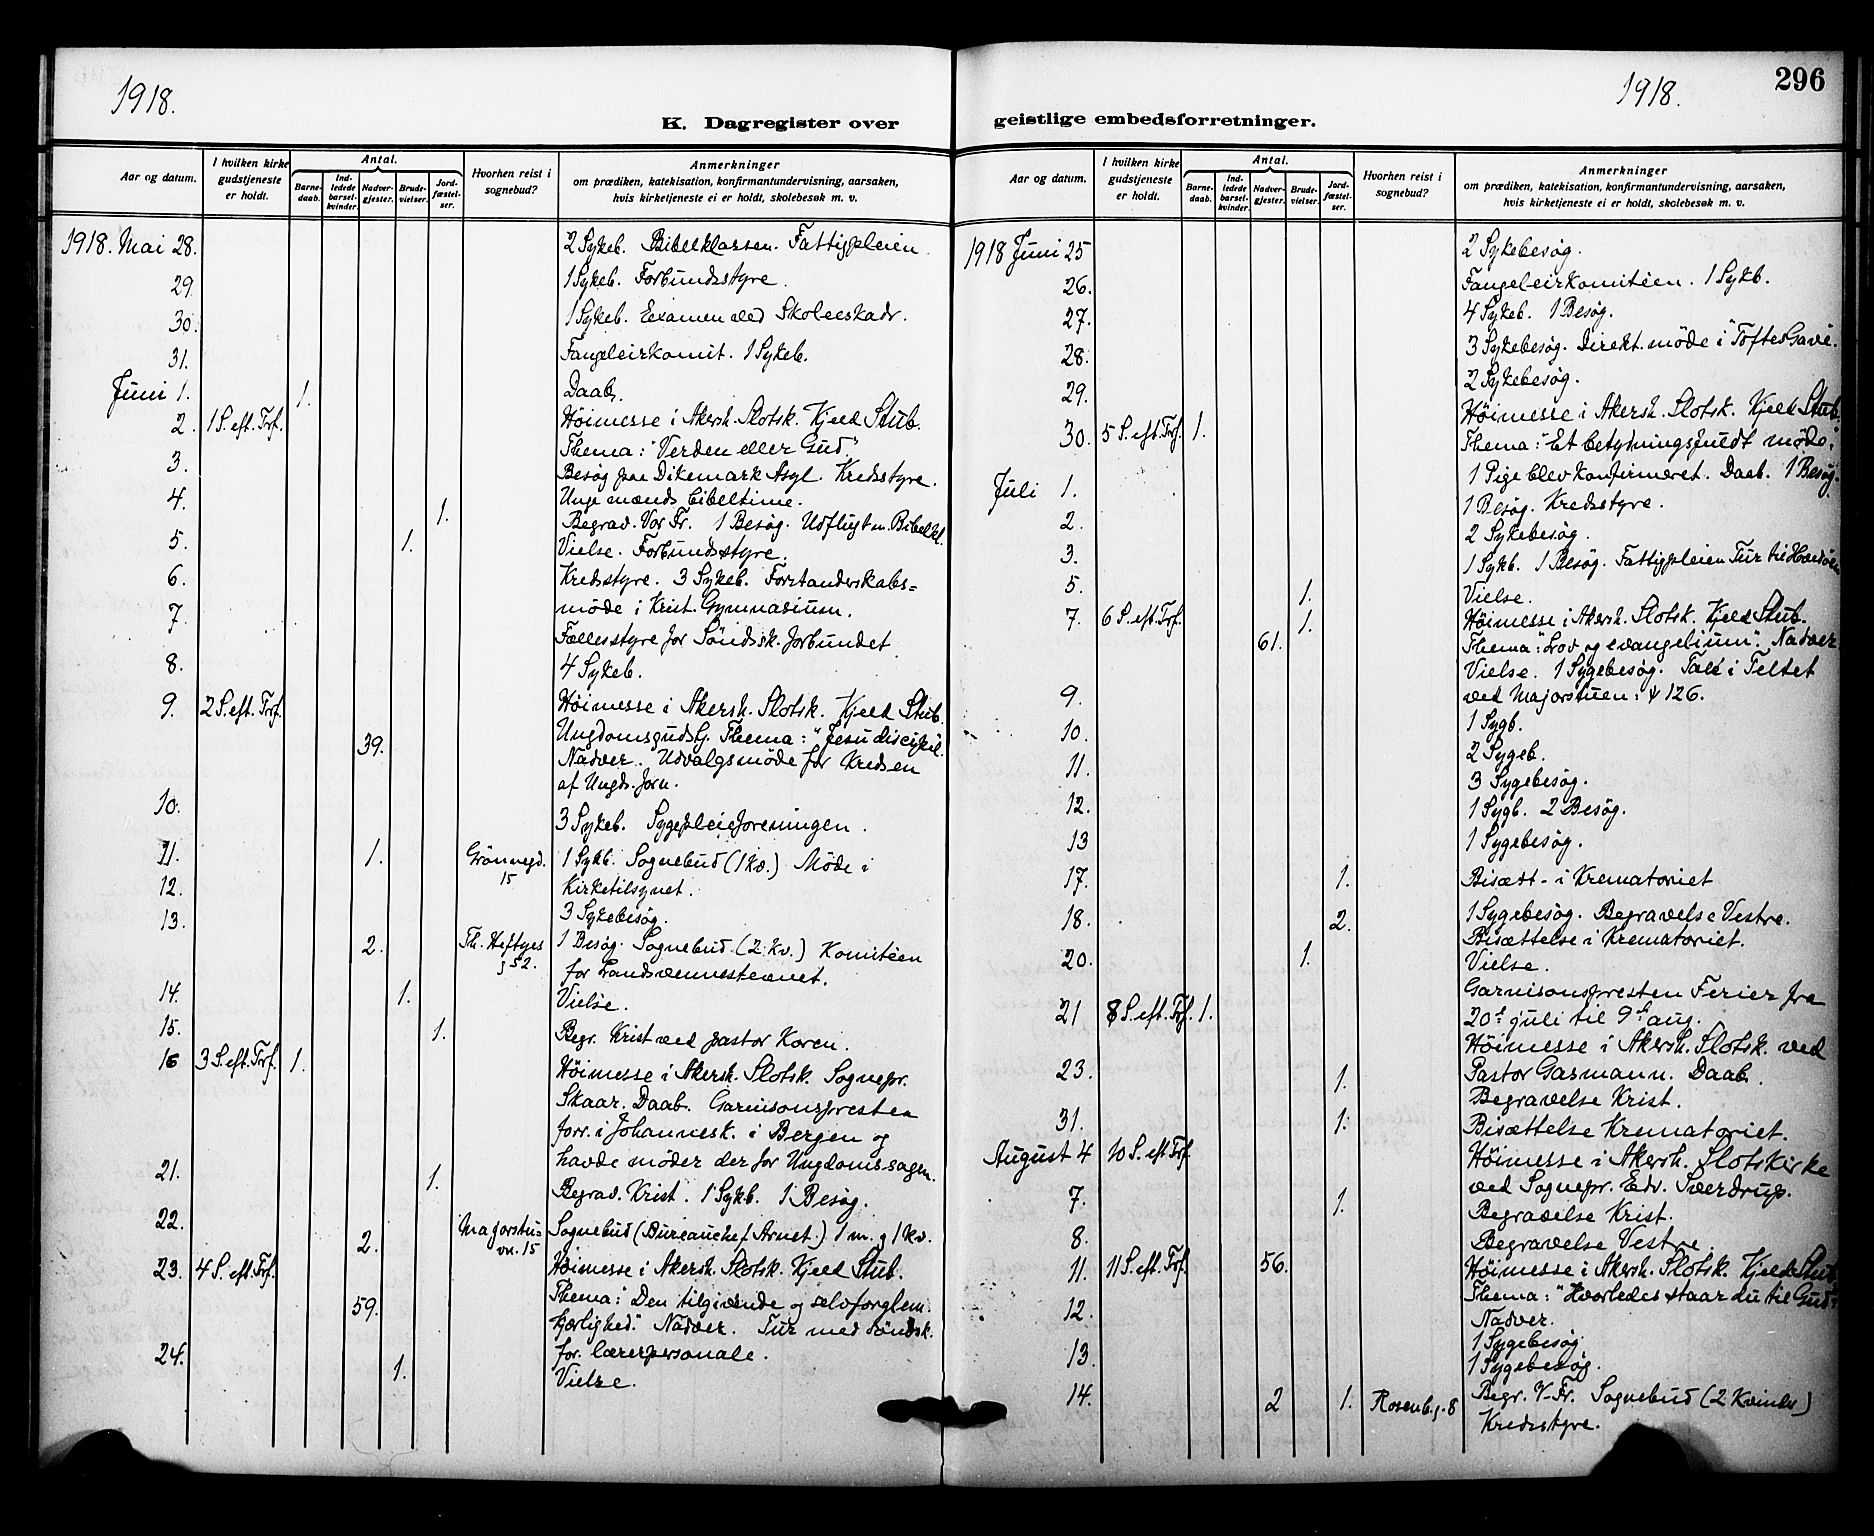 1918.
K. Dagregister over
Aar og datum.
I hvilken kirke gudstjeneste er holdt.
Antal.
Barne-daab.
Ind-ledede barsel-kvinder.
Nadver-gjester.
Brude-vielser.
Jord-fæstel-ser.
Hvorhen reist i sognebud?
Anmerkninger
om prædiken, katekisation, konfirmantundervisning, aarsaken,
hvis kirketjeneste ei er holdt, skolebesøk m. v.
1918. Mai 28. 2 Sykeb. Bibelklassen. Fattigpleien.
29. 1 Sykeb. Forbundsstyre.
30. 1 Sykeb. Examen ved Skoleeskadr.
31. Fangeleirkomit. 1 Sykeb.
Juni 1. 1. Daab.
2. 1 S. eft. Trf. Höimesse i Akersh. Slotsk. Kjeld Stub.
Thema: "Verden eller Gud."
3. Besøg paa Dikemark Asyl. Kredsstyre.
Unge mænds bibeltime.
4. 1. Begrav. Vor Fr. 1 Besøg. Udflugt m. Bibelkl.
5. 1. Vielse. Forbundsstyre.
6. Kredsstyre. 3 Sykeb. Forstanderskabs=
möde i Krist. Gymnasium.
7. Fællesstyre for Söndsk. forbundet
8. 4 Sykeb.
9. 2 S. eft. Trf. Höimesse i Akersh. Slotsk. Kjeld Stub.
39. Ungdomsgudstj. Thema: "Jesu discipel.
Nadver. Udvalgsmöde for Kredsen
af Ungds. forn.
10. 3 Sykeb. Sygepleieforeningen.
11. 1. Grönnegd. 15 1 Sykb. Sognebud (1 kv.) Möde i
Kirketilsynet.
12. 3 Sykebesøg.
13. 2. Th. Heftyes g 52. 1 Besøg. Sognebud. (2 Kv.) Komitéen
for Landsvennestevnet.
14. 1. Vielse.
15. 1. Begr. Krist ved pastor Koren.
16 3 S. eft. Trf. 1. Höimesse i Akersh. Slotsk. Sognepr.
Skaar. Daab. Garnisonspresten
forr. i Johannesk. i Bergen og
havde möder der for Ungdomssagen.
21. 1. Begrav. Krist. 1 Sykb. 1 Besøg.
22. 2. Majorstu= vn. 15 Sognebud (Bureauchef Arnet.) 1 m. g 1 kv.
23. 4 S. eft. Trf. Höimesse i Akersh. Slotsk. Kjeld Stub.
59. Thema: "Den tilgivende og selvforglem.
kjærlighed." Nadver. Tur med Söndsk.
for. lærerpersonale.
24. 1. Vielse.
1918.
296
geistlige embedsforretninger.
Aar og datum.
I hvilken kirke gudstjeneste er holdt.
Antal.
Barne-daab.
Ind-ledede barsel-kvinder.
Nadver-gjester.
Brude-vielser.
Jord-fæstel-ser.
Hvorhen reist i sognebud?
Anmerkninger
om prædiken, katekisation, konfirmantundervisning, aarsaken,
hvis kirketjeneste ei er holdt, skolebesøk m. v.
1918 Juni 25 2 Sykebesøg.
26. Fangeleirkomitéen. 1 Sykb.
27. 4 Sykeb. 1 Besøg.
28. 3 Sykebesøg. Direkt. möde i "Toftes Gave.
29. 2 Sykebesøg.
30. 5 S. eft. Trf. 1. Höimesse i Akersh. Slotsk. Kjeld Stub.
Thema: "Et betydningsfuldt möde."
1 Pige blev konfirmeret. Daab. 1 Besøg.
Juli 1. 1 Besøg. Kredsstyre.
2. 2 Sykebesøg.
3. 1 Sykb. 1 Besøg. Fattigpleien Tur til Hovedöen
5. 1. Vielse.
7. 6 S. eft. Trf. 1. Höimesse i Akersh. Slotsk. Kjeld Stub.
61. Thema: "Lov og evangelium". Nadver
Vielse. 1 Sygebesøg. Tale i Teltet
ved Majorstuen: ψ 126.
9. 1 Sygb.
10. 2 Sygeb.
11. 3 Sygebesøg.
12. 1 Sygb. 2 Besøg.
13 1 Sygebesøg.
17. 1. Bisætt- i Krematoriet
18. 2. 1 Sygebesøg. Begravelse Vestre.
Bisættelse i Krematoriet.
20. 1. Vielse.
Garnisonspresten Ferier fra
20de juli til 9de aug.
21 8 S. eft. Trf. 1. Höimesse i Akersh. Slotsk. ved
Pastor Gasmann. Daab.
23. 1. Begravelse Krist.
31. 1. Bisættelse Krematoriet.
August 4 10 S. eft Trf Höimesse i Akersh. Slotskirke
ved Sognepr. Edv. Sverdrup.
7. 1. Begravelse Krist.
8. Begravelse Vestre.
11. 11 S. eft. Trf. 56. Höimesse i Akersh. Slotsk. Kjeld Stub
Thema: "Hvorledes staar du til Gud"
Nadver.
12. 1 Sygebesøg.
13. 1 Sygebesøg.
14. 2 1. Rosenb. g. 8 Begr. V-Fr. Sognebud (2 Kvinder)
Kredsstyre.